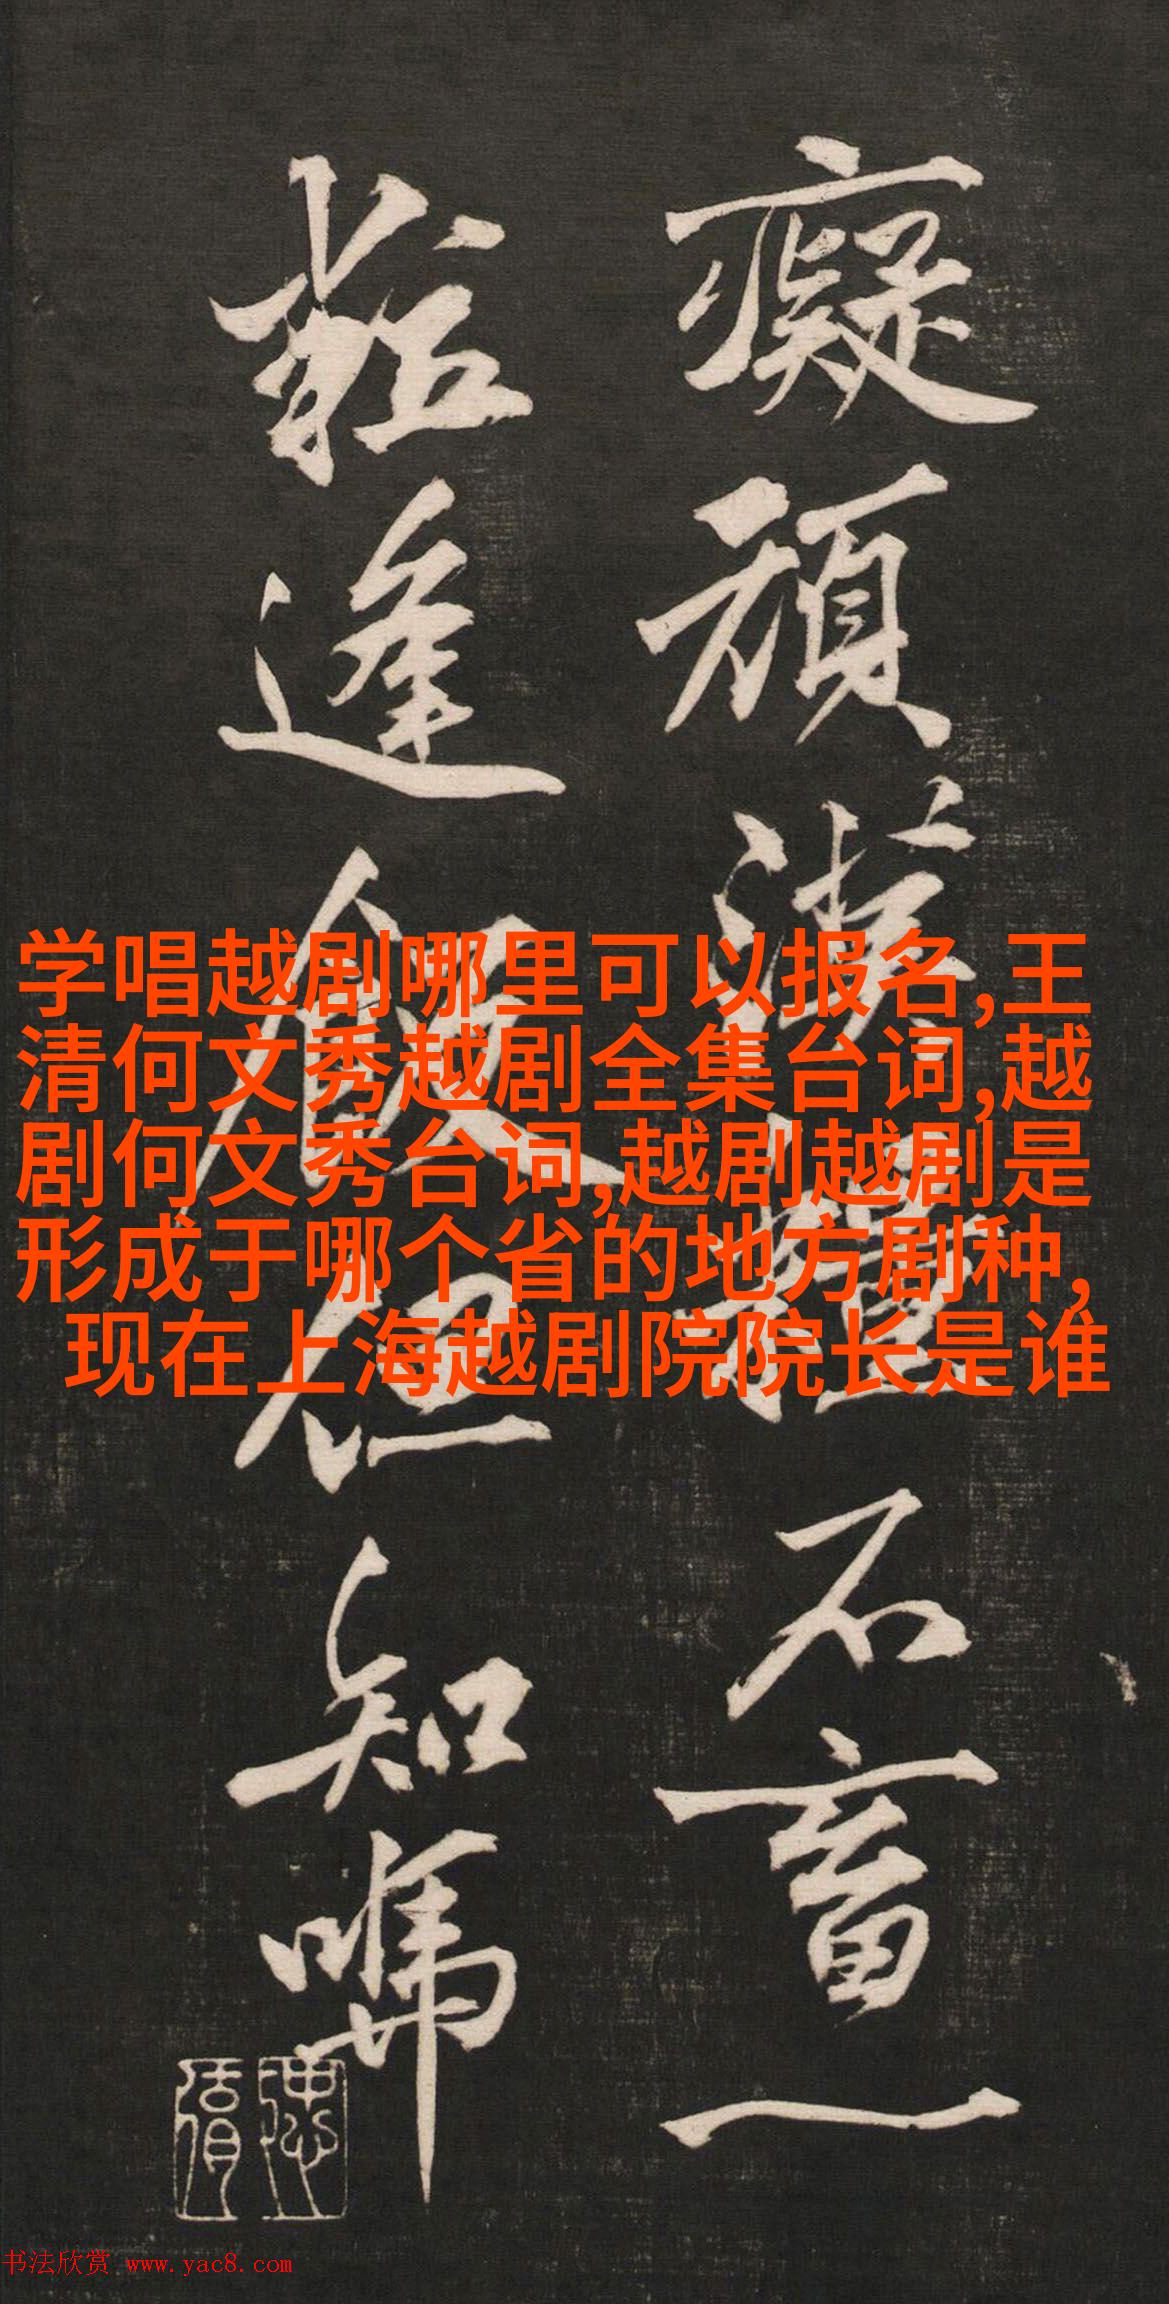 癡頑漢石畜一
逢飯但知
学唱越剧哪里可以报名,王
清何文秀越剧全集台词,越
剧何文秀台词,越剧越剧是
形成于哪个省的地方剧种,
现在上海越剧院院长是谁
书法欣赏 www.yac8.com